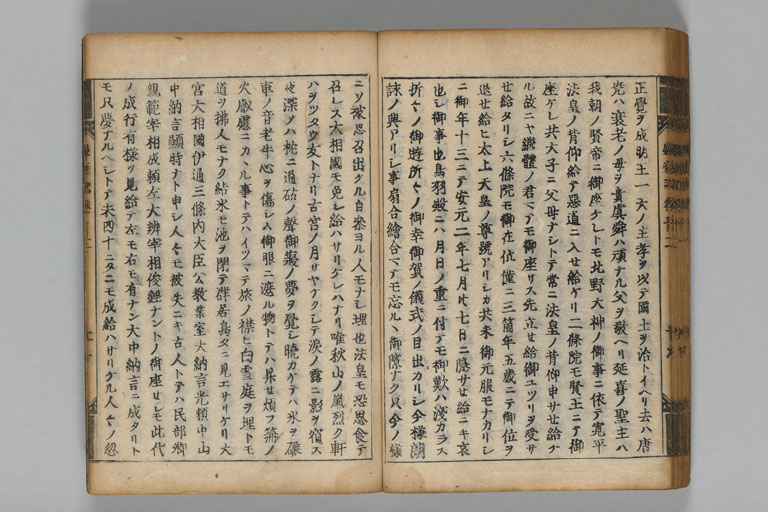 正覺ヲ成明王一天ノ主孝ヲ以テ國土ヲ治トイヘリ去ハ唐
堯ハ衰老ノ母ヲ貴虞舜ハ頑ナル父ヲ敬ヘリ延喜ノ聖主ハ
我朝ノ賢帝ニ御座ケレトモ北野大神ノ御事ニ依テ寛平
法皇ノ背仰給テ惡道ニ入セ給ケリ二條院モ賢王ニテ御
座ケレ共天子ニ父母ナシトテ常ニ法皇ノ背仰申サセ給ケ
ル故ニヤ繼體ノ君ニテモ御座サス先立セ給御ユツリヲ受サ
セ給タリシ六條院モ御在位僅ニ三箇年五歳ニテ御位ヲ
退セ給ヒ太上天皇ノ尊號アリシカ共未御元服モナカリシ
ニ御年十三ニテ安元二年七月廿七日ニ隱サセ給ニキ哀
也シ御事也鳥羽殿ニハ月日ノ重ニ付テモ御歎ハ淺カラス
折々ノ御遊所々ノ御幸御賀ノ儀式ノ目出カリシ今樣朗
詠ノ興アリシ事扇合繪合マテモ忘ルヽ御隙ナク只今ノ樣
ニソ被思召出ケル自參ヨル人モナシ理也法皇モ恐思食テ
召レス太相國モ免レ給ハサリケレハナリ唯秋山ノ嵐烈ク軒
ハヲツタウ友トナリ古宮ノ月サヤケクシテ涙ノ露ニ影ヲ宿ス
夜深ケハ枕ニ過砧ノ聲御寢ノ夢ヲ覺シ曉カケテハ氷ヲ碾
車ノ音老牛心ヲ傷シム御眼ニ遮ル物トテハ昇セ煩フ篝ノ
火叡慮ニカヽル事トテハイツマテ旅ノ襟ヒ白雪庭ヲ埋トモ
道ヲ拂人モナク結氷モ池ヲ閉テ群居鳥タニ見エサリケリ大
宮大相國伊通三條内大臣公教葉室大納言光頼中山
中納言顯時ナト申シ人々モ被失ニキ古人トテハ民部卿
親範宰相成頼左大辨宰相俊經ナントノ御座セシモ此代
ノ成行有樣ヲ見給テ左モ右モ有ナン大中納言ニ成タリト
モ只夢アルヘシトテ未四十ニタニモ成給ハサリケル人々ノ忽